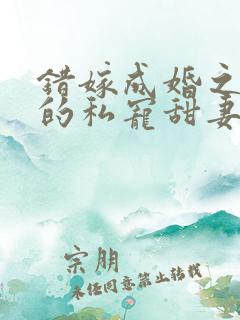 错嫁成婚之
的私宠甜妻
宗朋
未经同意禁止转载